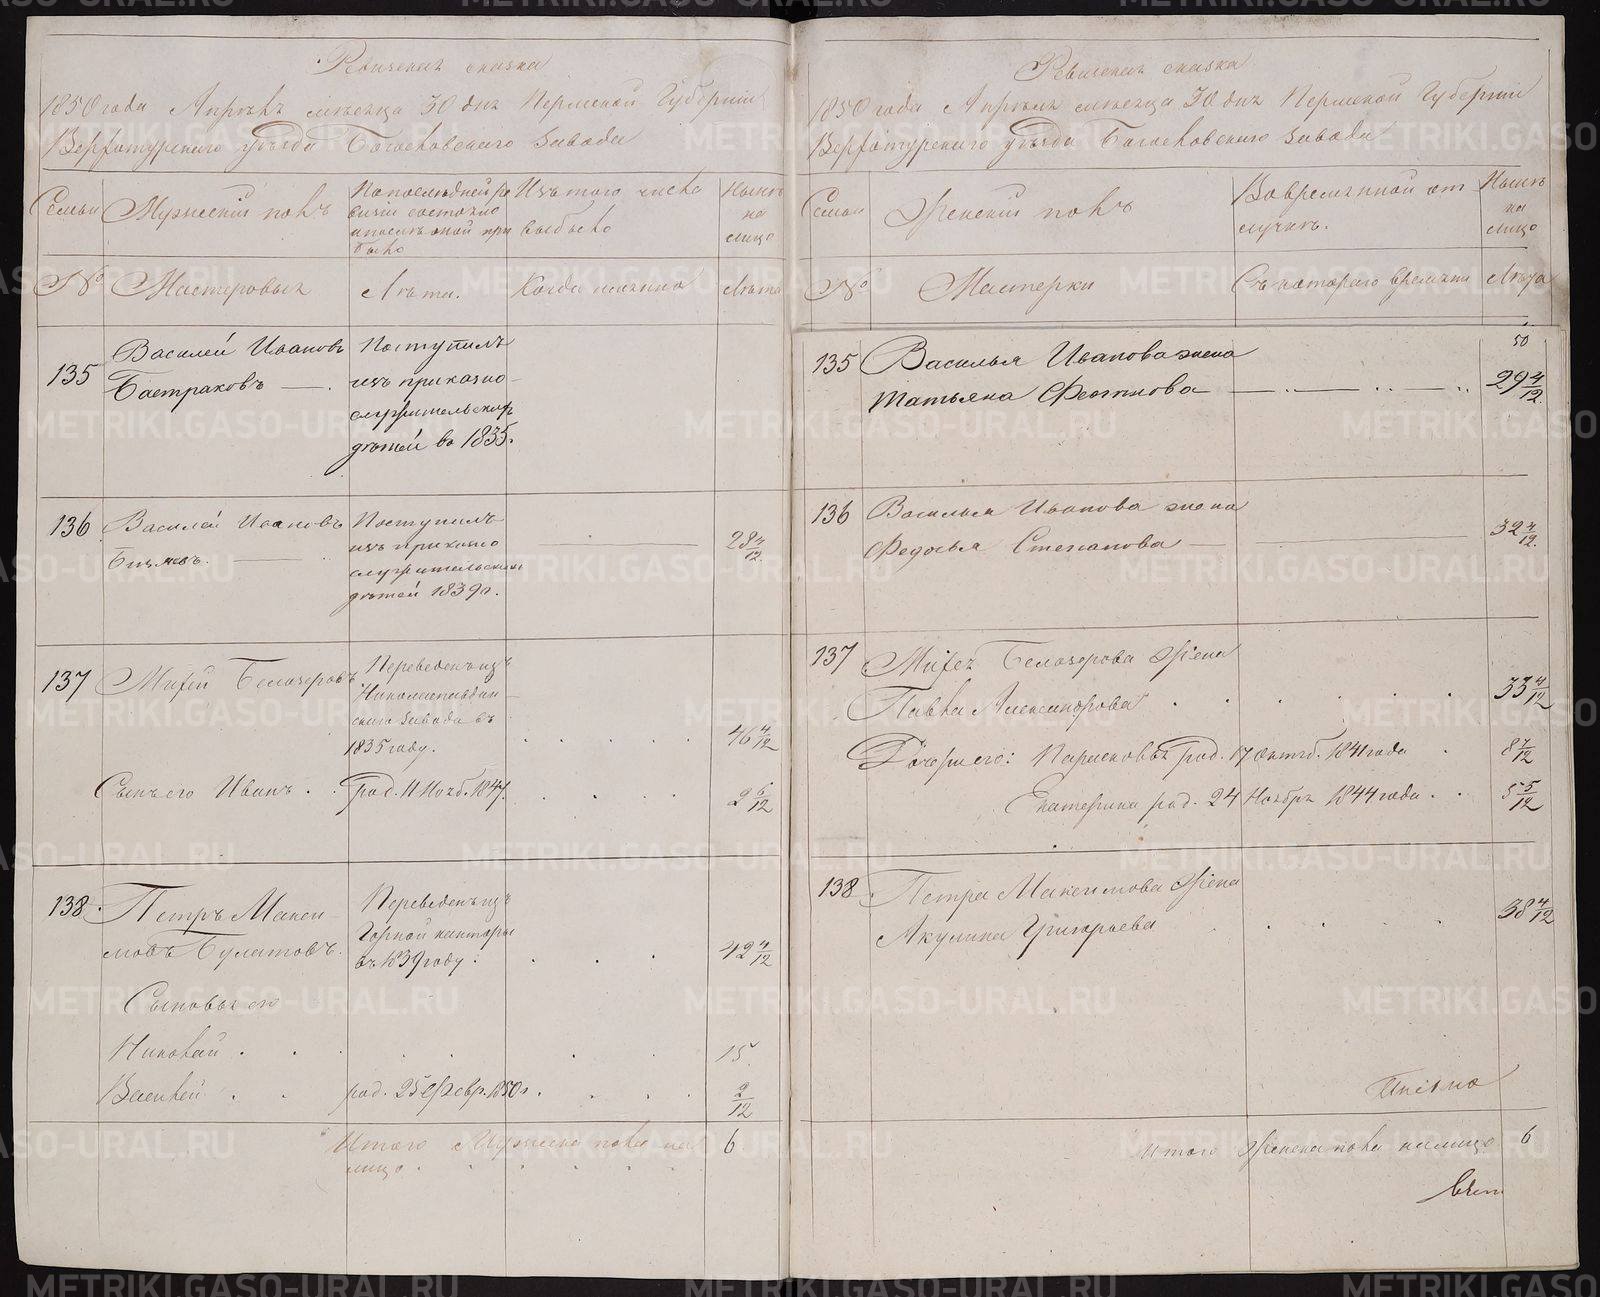 Ревизская сказка
1850 года Апреля месяца 30 дня Пермской Губернии
Верхотурского уезда Богословского завода
Семьи
Мужеский полъ
По последней ре
визіи состояло
и после оной при
было
Изъ того числа
выбыло
Ныне
на
лицо
№
Мастеровыя
Лета.
Когда именно
Лета
135
Василей Ивановъ
Бастраковъ
Поступилъ
изъ приказно
служительскихъ
детей въ 1835.
136
Василей Ивановъ
Поступилъ
изъ приказно
служительскихъ
детей 1839 г.
28 4/12.
137
Михей Белозеровъ
Переведенъ изъ
Николаепавдин
скаго завода въ
1835 году.
46 4/12
Сынъ его Иванъ
род. 11 Нояб. 1847.
2 6/12
138
Петръ Макси
мовъ Булатовъ.
Переведенъ изъ
Горной канторы
въ 1839 году
42 4/12
Сыновья его
Николай
15
Василей
род. 25 Февр. 1850 г.
2/12
Итого Мужеска пола на
лицо
6
Ревизская сказка
1850 года Апреля месяца 30 дня Пермской Губернии
Верхотурского уезда Богословского завода
Семьи
Женский полъ
Во временной от
лучке.
Ныне
на
лицо
№
Мастерки
Съ котораго времени
Лета
50
135
Василья Иванова жена
Татьяна
29 4/12
136
Василья Иванова жена
Федосья Степанова
32 4/12.
137
Михея Белозерова жена
Павла Александрова
33 4/12
Дочери его: Парасковья род. 17 Октяб. 1841 года
8 7/12
Екатерина род. 24 Ноября 1844 года
5 5/12
138
Петра Максимова жена
Акулина Григорьева
38 4/12
Итого Женска пола налицо
6